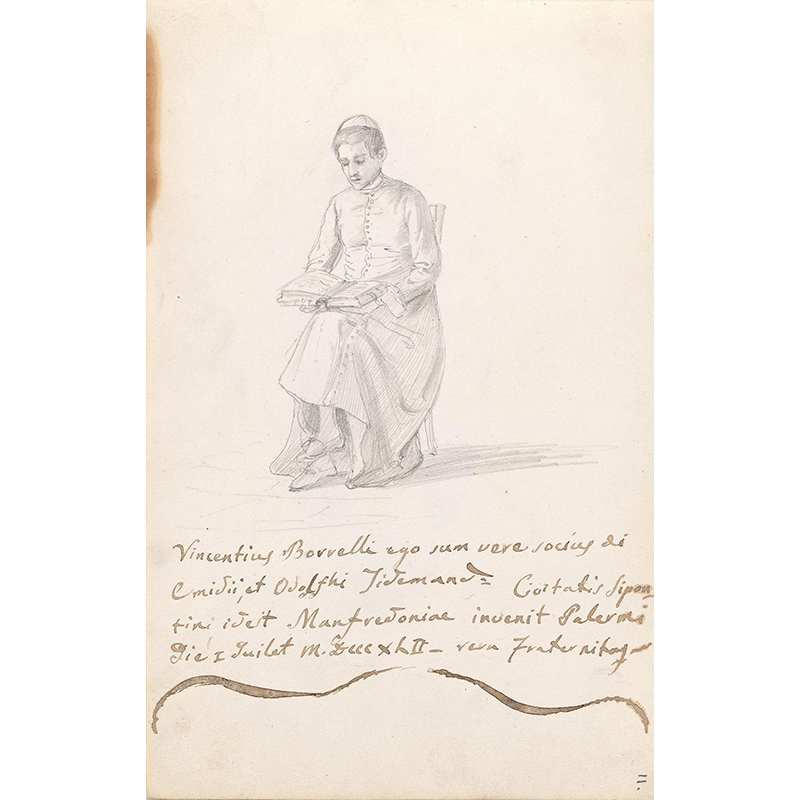 Vincentius Borrelli ego sum vere socius di
Emidii, et Odolfhi Tidemand= Civitatis Sipon-
tini idest Manfredoniae invenit Palermi
Die I Juilet M.DcccXLII – vera Fraternitas